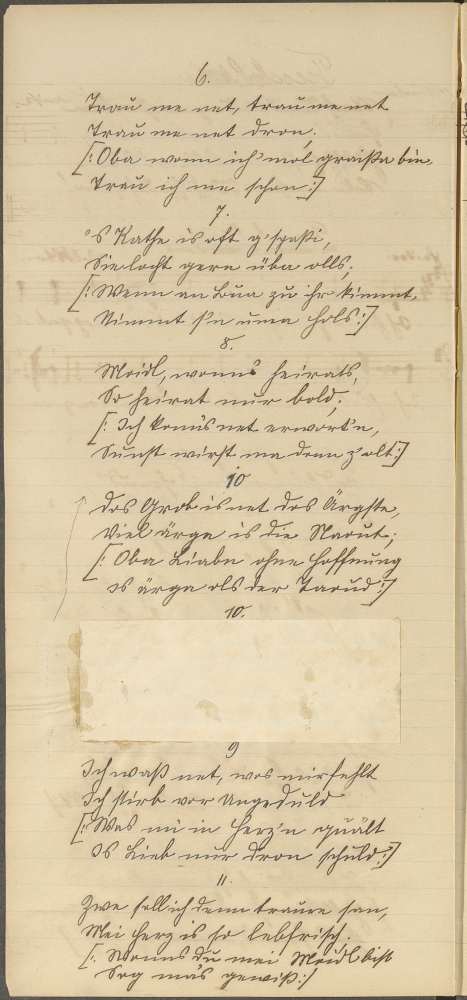 6.
Trau me net, trau me net
Trau me net dron,
[: Oba wonn ich 'mol graißa bin,
Trau ich me schon :]
7.
's Kathe is oft g'spassi,
Sie locht gern üba olls,
[: Wenn an Bua zu ihr kimmt,
Nimmt s'n uma Hols :]
8.
Moidl, wonns heirats,
So heirat nur bold,
[: Ich konn's net erwort'n,
Sunst wirst ma denn z'olt :]
10
Dos Grob is net dos Ärgste,
Viel ärga is die Naout;
[: Oba Liabn ohne Hoffnung
Is ärga ols der Taoud :]
10.
9
Ich waß net, wos mir fehlt
Ich stirb vor Ungeduld
[: Wos mi in Herz'n quält
Is Lieb nur dron schuld :]
11.
Zwe soll ich denn traure san,
Mei Herz is so lebfrisch.
[: Wonns Du mei Moidl bist
Sog mas gewiß :]